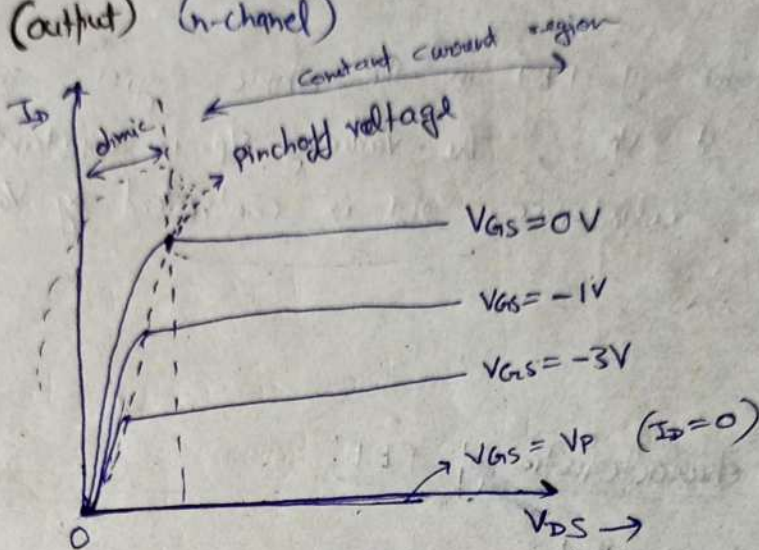 (output) (n-chanel)
constant current region
I_D
ohmic
pinchoff voltage
V_GS = 0 V
V_GS = -1V
V_GS = -3V
V_GS = V_P (I_D = 0)
0
V_DS →